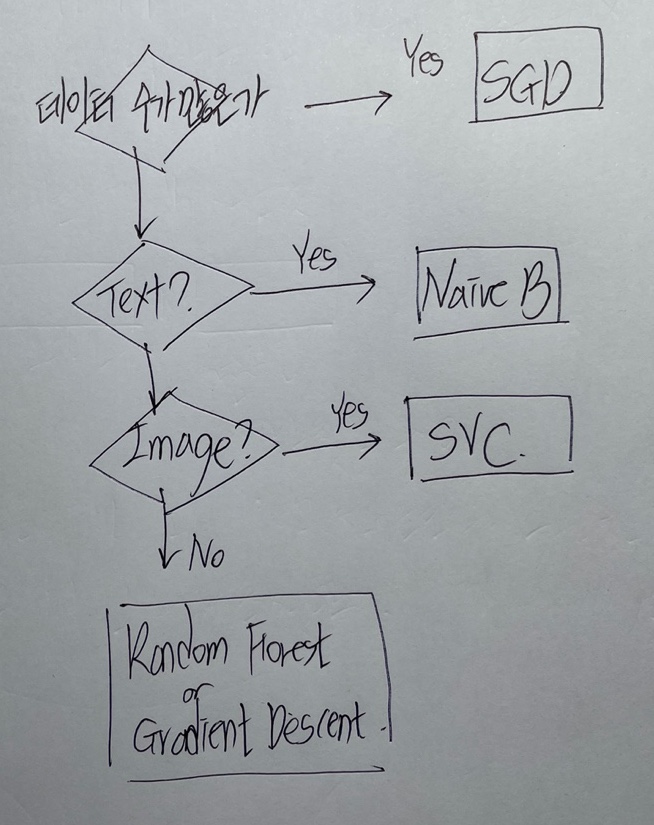 데이터 수가 많은가
Yes
SGD
Text?
Yes
Naive B
Image?
Yes
SVC.
No
Random Forest
or
Gradient Descent.